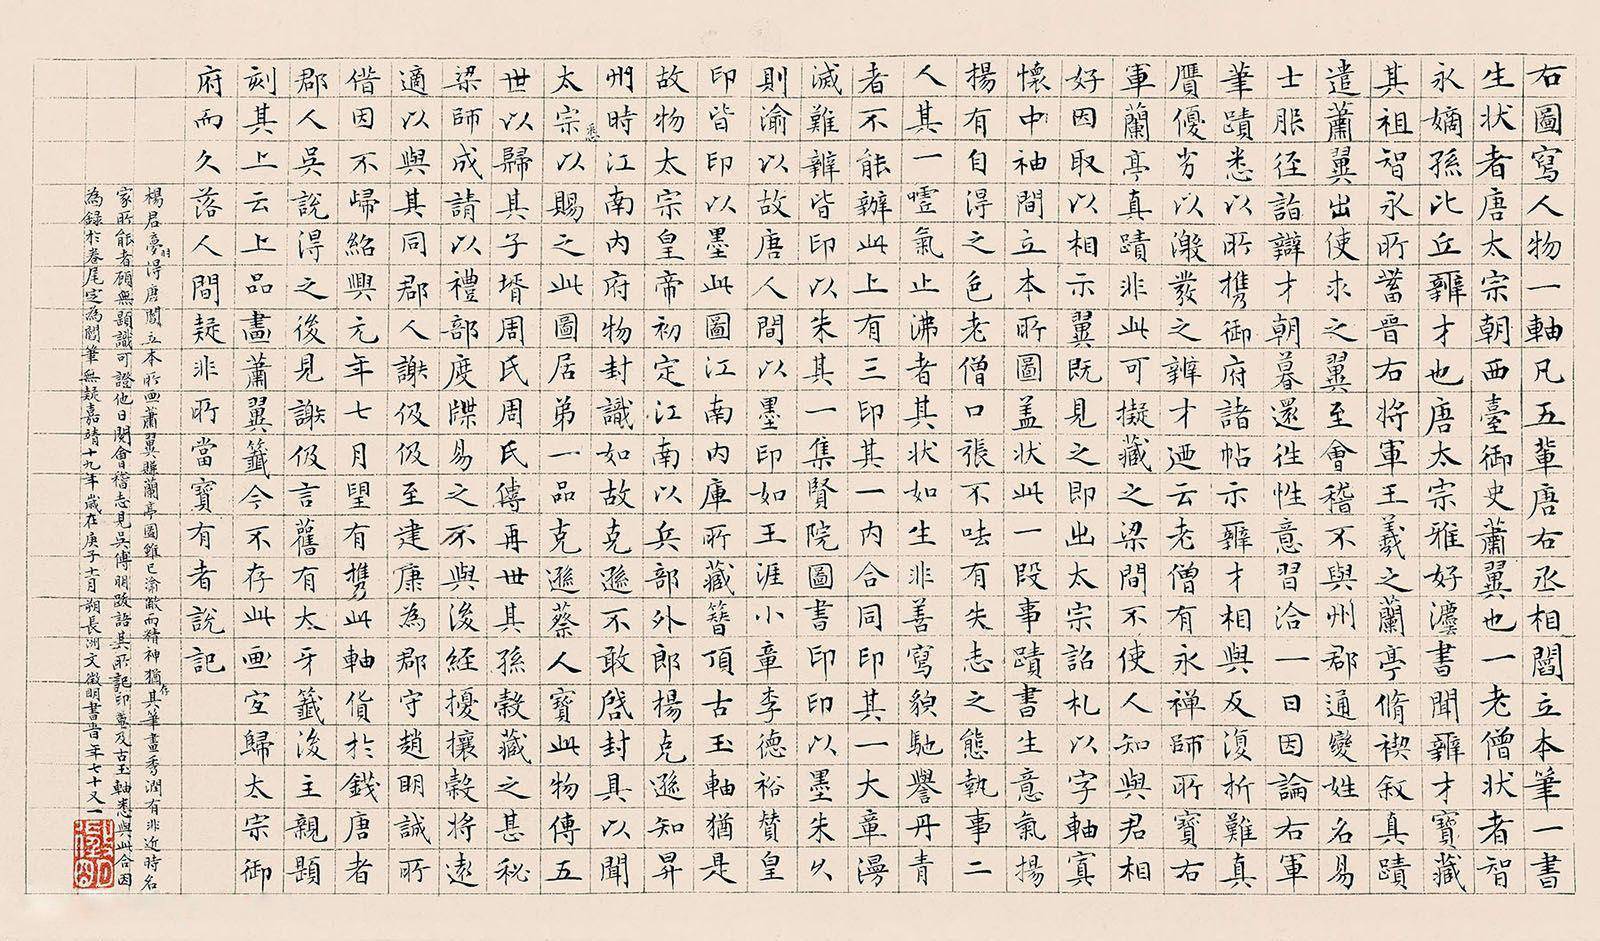 右圖寫人物一軸凡五輩唐右丞相閻立本筆一書
生状者唐太宗朝西臺御史蕭翼也一老僧状者智
永嫡孫比丘辯才也唐太宗雅好灋書聞辯才寶藏
其祖智永所蓄晉右將軍王羲之蘭亭脩禊叙真蹟
遣蕭翼出使求之翼至會稽不與州郡通變姓名易
士服徑詣辯才朝暮還往性意習洽一日因論右軍
筆蹟悉以所攜御府諸帖示辯才相與反復折難真
贋優劣以激發之辨才迺云老僧有永禅師所寶右
軍蘭亭真蹟非此可擬藏之梁間不使人知與君相
好因取以相示翼既見之即出太宗詔札以字軸寘
懷中袖間立本所圖盖状此一段事蹟書生意氣揚
揚有自得之色老僧口張不呿有失志之態執事二
人其一嘘氣止沸者其状如生非善寫貌馳譽丹青
者不能辦此上有三印其一内合同印其一大章漫
滅難辨皆印以朱其一集賢院圖書印印以墨朱久
則渝以故唐人間以墨印如王涯小章李德裕贊皇
印皆印以墨此圖江南内庫所藏簪頂古玉軸猶是
故物太宗皇帝初定江南以兵部外郎楊克遜知昇
州時江南内府物封識如故克遜不敢啓封具以聞
太宗悉以賜之此圖居第一品克遜蔡人寶此物傳五
世以歸其子壻周氏周氏傳再世其孫穀藏之甚秘
梁師成請以禮部度牒易之不與後經擾攘穀將遠
適以與其同郡人謝伋伋至建康為郡守趙明誠所
借因不歸紹興元年七月望有攜此軸貨於錢唐者
郡人吳說得之後見謝伋言舊有太牙籤後主親題
刻其上云上品畫蕭翼籤今不存此画宜歸太宗御
府而久落人間疑非所當寶有者說記
楊君夢時得唐閻立本所画蕭翼賺蘭亭圖雖已渝敝而精神猶存其筆畫秀潤有非近時名
家所能者顧無題識可證他日閱會稽志見吳傅朋跋語其所記印章及古玉軸悉與此合因
為錄於卷尾定為閻筆無疑嘉靖十九年歲在庚子十二月朔長洲文徵明書旹年七十又一